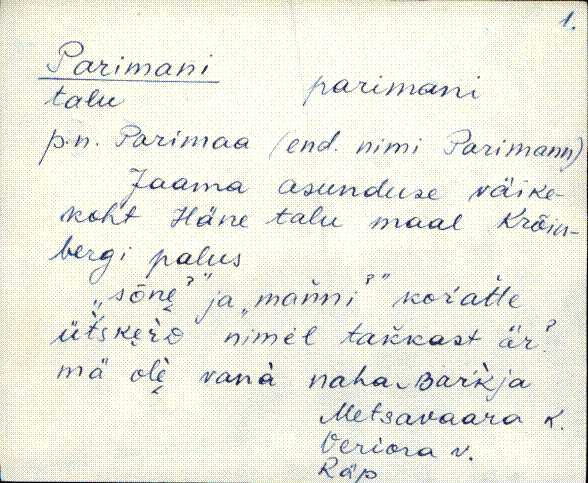 1.
Parimani parimani
talu
p.n. Parimaa (end. nimi Parimann)
Jaama asunduse väike-
koht Häne talu maal Krõin-
bergi palus
„sõne?” ja „manni?” korate
ütskerd nimel takkast är?
mä olè vanà naha barkja
Metsavaara k.
Veriora v.
Räp